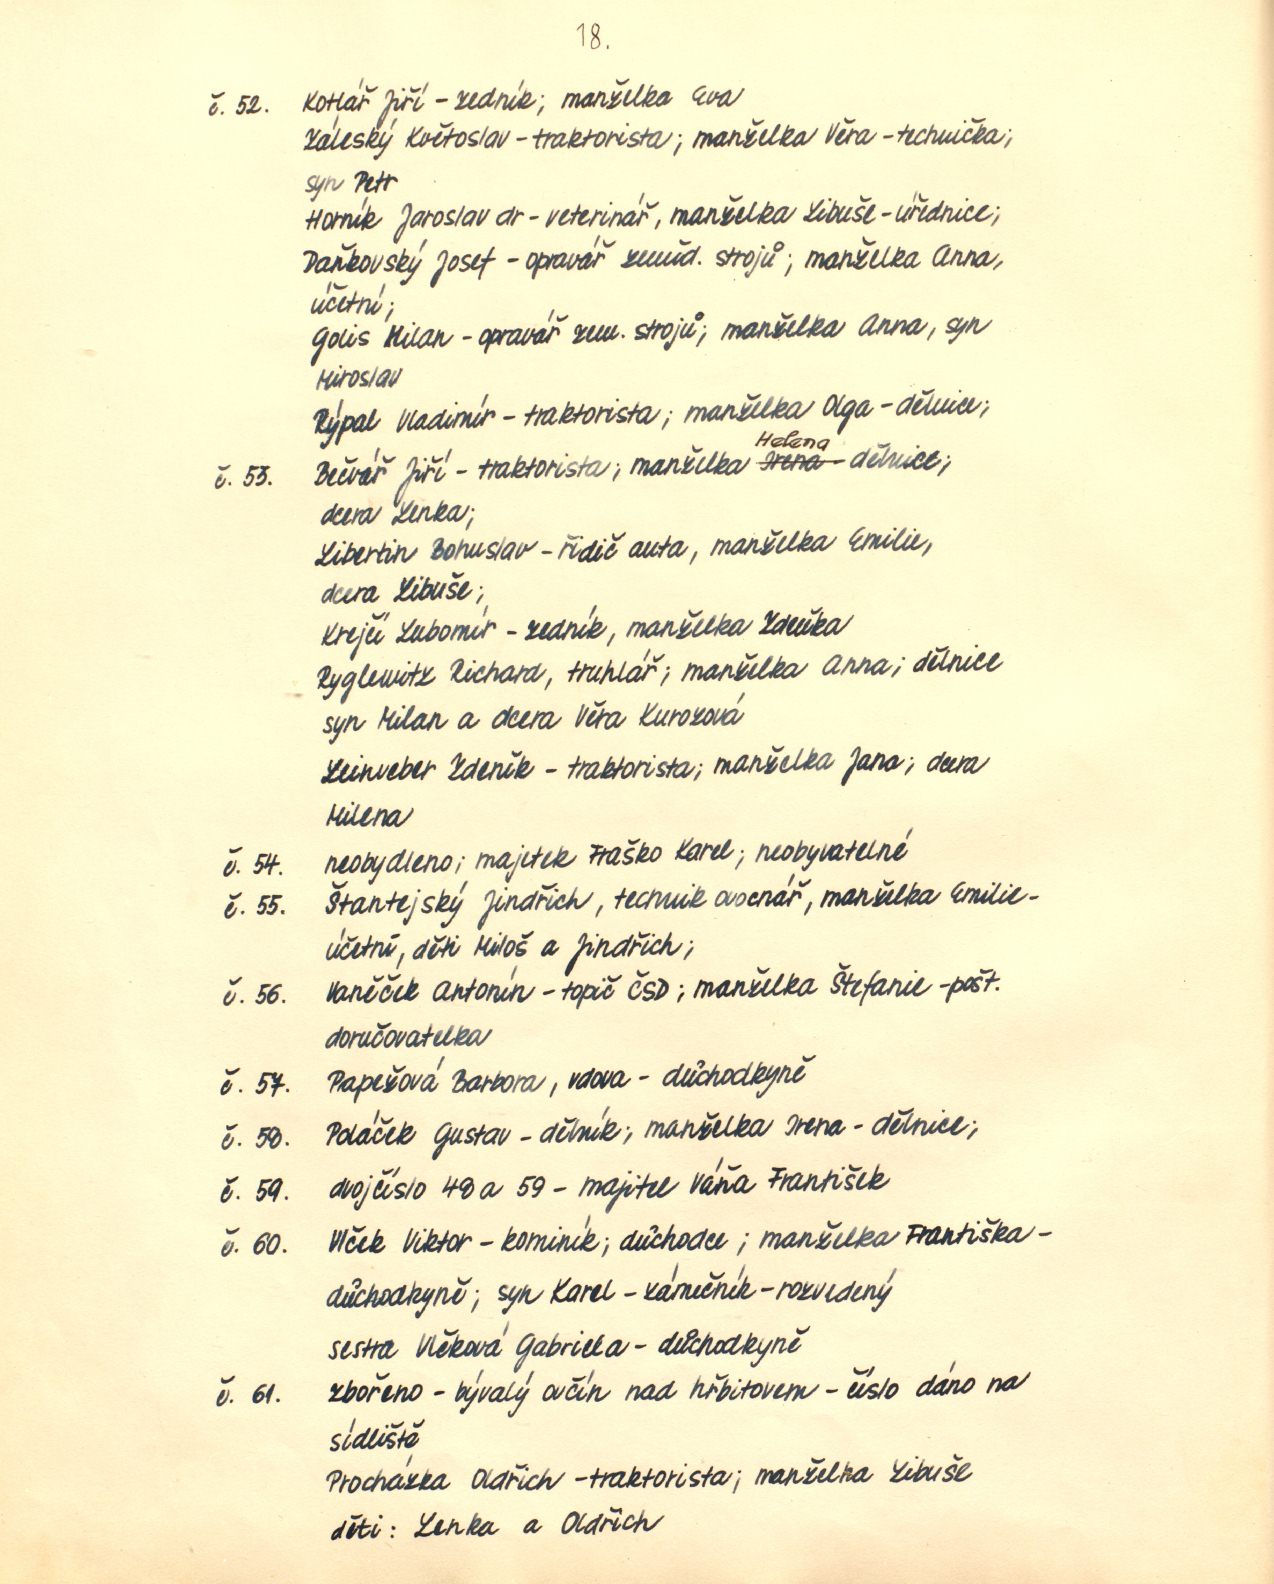 18.
č. 52. Kotlář Jiří - zedník; manželka Eva
Záleský Květoslav - traktorista; manželka Věra - technička;
syn Petr
Horník Jaroslav dr - veterinář, manželka Libuše - úřednice;
Daňkovský Josef - opravář zeměd. strojů; manželka Anna,
účetní;
Golis Milan - opravář zem. strojů; manželka Anna, syn
Miroslav
Rýpal Vladimír - traktorista; manželka Olga - dělnice;
Helena
č. 53. Bečvář Jiří - traktorista; manželka Irena - dělnice;
dcera Lenka;
Libertin Bohuslav - řidič auta, manželka Emilie,
dcera Libuše;
Krejčí Lubomír - zedník, manželka Zdeňka
Ryglewitz Richard, truhlář; manželka Anna; dělnice
syn Milan a dcera Věra Kurozová
Leinveber Zdeněk - traktorista; manželka Jana; dcera
Milena
č. 54. neobydleno; majetek Fraško Karel; neobyvatelné
č. 55. Štantejský Jindřich, technik ovocnář, manželka Emilie -
účetní, děti Miloš a Jindřich;
č. 56. Vaněček Antonín - topič ČSD; manželka Štefanie - pošt.
doručovatelka
č. 57. Papežová Barbora, vdova - důchodkyně
č. 58. Poláček Gustav - dělník; manželka Irena - dělnice;
č. 59. dvojčíslo 48 a 59 - majitel Váňa František
č. 60. Vlček Viktor - kominík; důchodce; manželka Františka -
důchodkyně; syn Karel - zámečník - rozvedený
sestra Vlčková Gabriela - důchodkyně
č. 61. zbořeno - bývalý ovčín nad hřbitovem - číslo dáno na
sídliště
Procházka Oldřich - traktorista; manželka Libuše
děti: Lenka a Oldřich